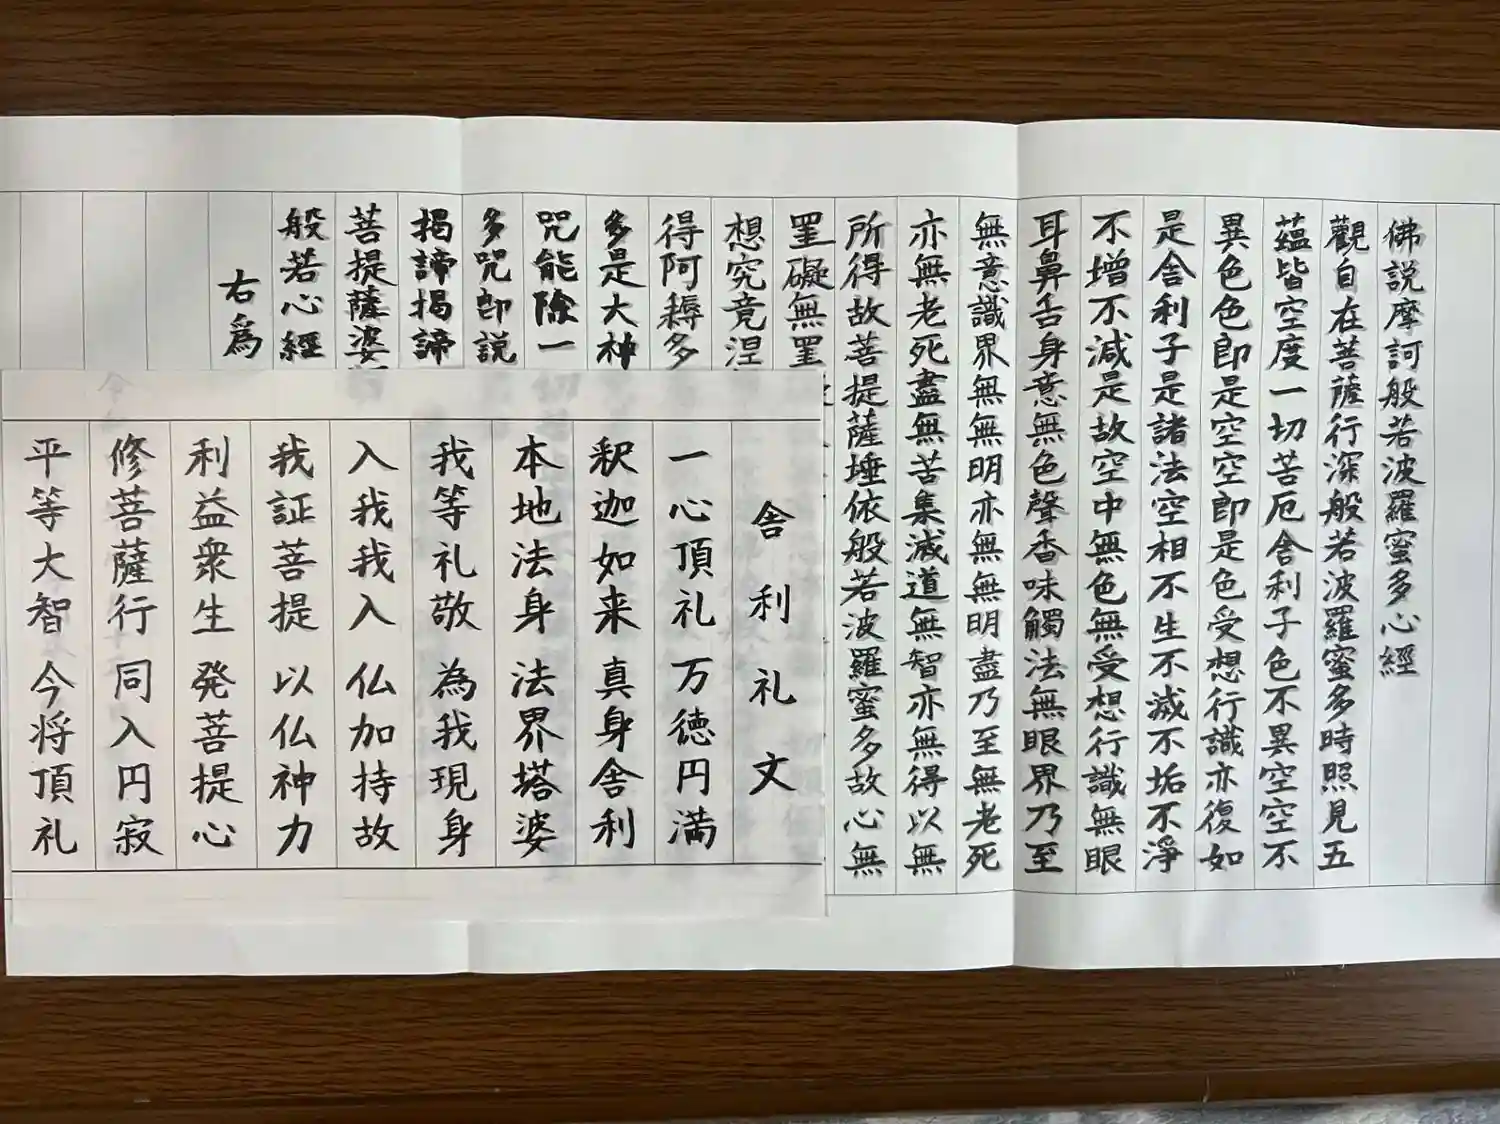 佛説摩訶般若波羅蜜多心經
觀自在菩薩行深般若波羅蜜多時照見五
蘊皆空度一切苦厄舎利子色不異空空不
異色色即是空空即是色受想行識亦復如
是舎利子是諸法空相不生不滅不垢不淨
不增不減是故空中無色無受想行識無眼
耳鼻舌身意無色聲香味觸法無眼界乃至
無意識界無無明亦無無明盡乃至無老死
亦無老死盡無苦集滅道無智亦無得以無
所得故菩提薩埵依般若波羅蜜多故心無
罣礙無罣
想究竟涅
得阿耨多
多是大神
咒能除一
多咒即説
揭諦揭諦
菩提薩婆
般若心經
右爲
舎利礼文
一心頂礼万徳円満
釈迦如来真身舎利
本地法身法界塔婆
我等礼敬為我現身
入我我入仏加持故
我証菩提以仏神力
利益衆生発菩提心
修菩薩行同入円寂
平等大智今将頂礼